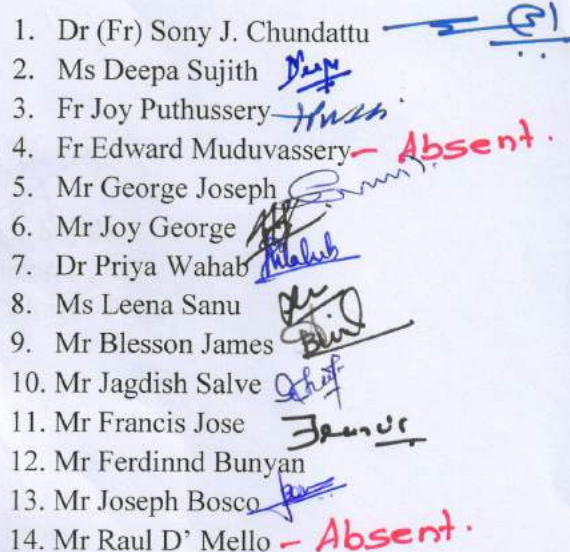 1. Dr (Fr) Sony J. Chundattu
2. Ms Deepa Sujith
3. Fr Joy Puthussery
4. Fr Edward Muduvassery - Absent.
5. Mr George Joseph
6. Mr Joy George
7. Dr Priya Wahab
8. Ms Leena Sanu
9. Mr Blesson James
10. Mr Jagdish Salve
11. Mr Francis Jose Francis
12. Mr Ferdinnd Bunyan
13. Mr Joseph Bosco
14. Mr Raul D' Mello - Absent.